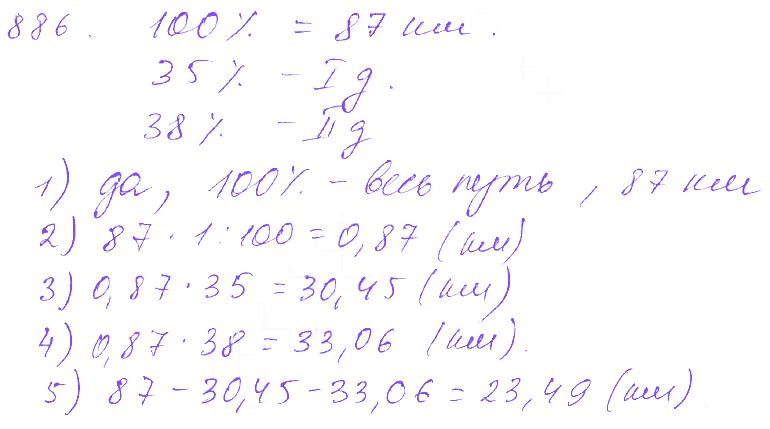 886. 100% = 87 км.
35% - I д.
38% - II д
1) да, 100% - весь путь, 87 км
2) 87 · 1 : 100 = 0,87 (км)
3) 0,87 · 35 = 30,45 (км)
4) 0,87 · 38 = 33,06 (км).
5) 87 - 30,45 - 33,06 = 23,49 (км)